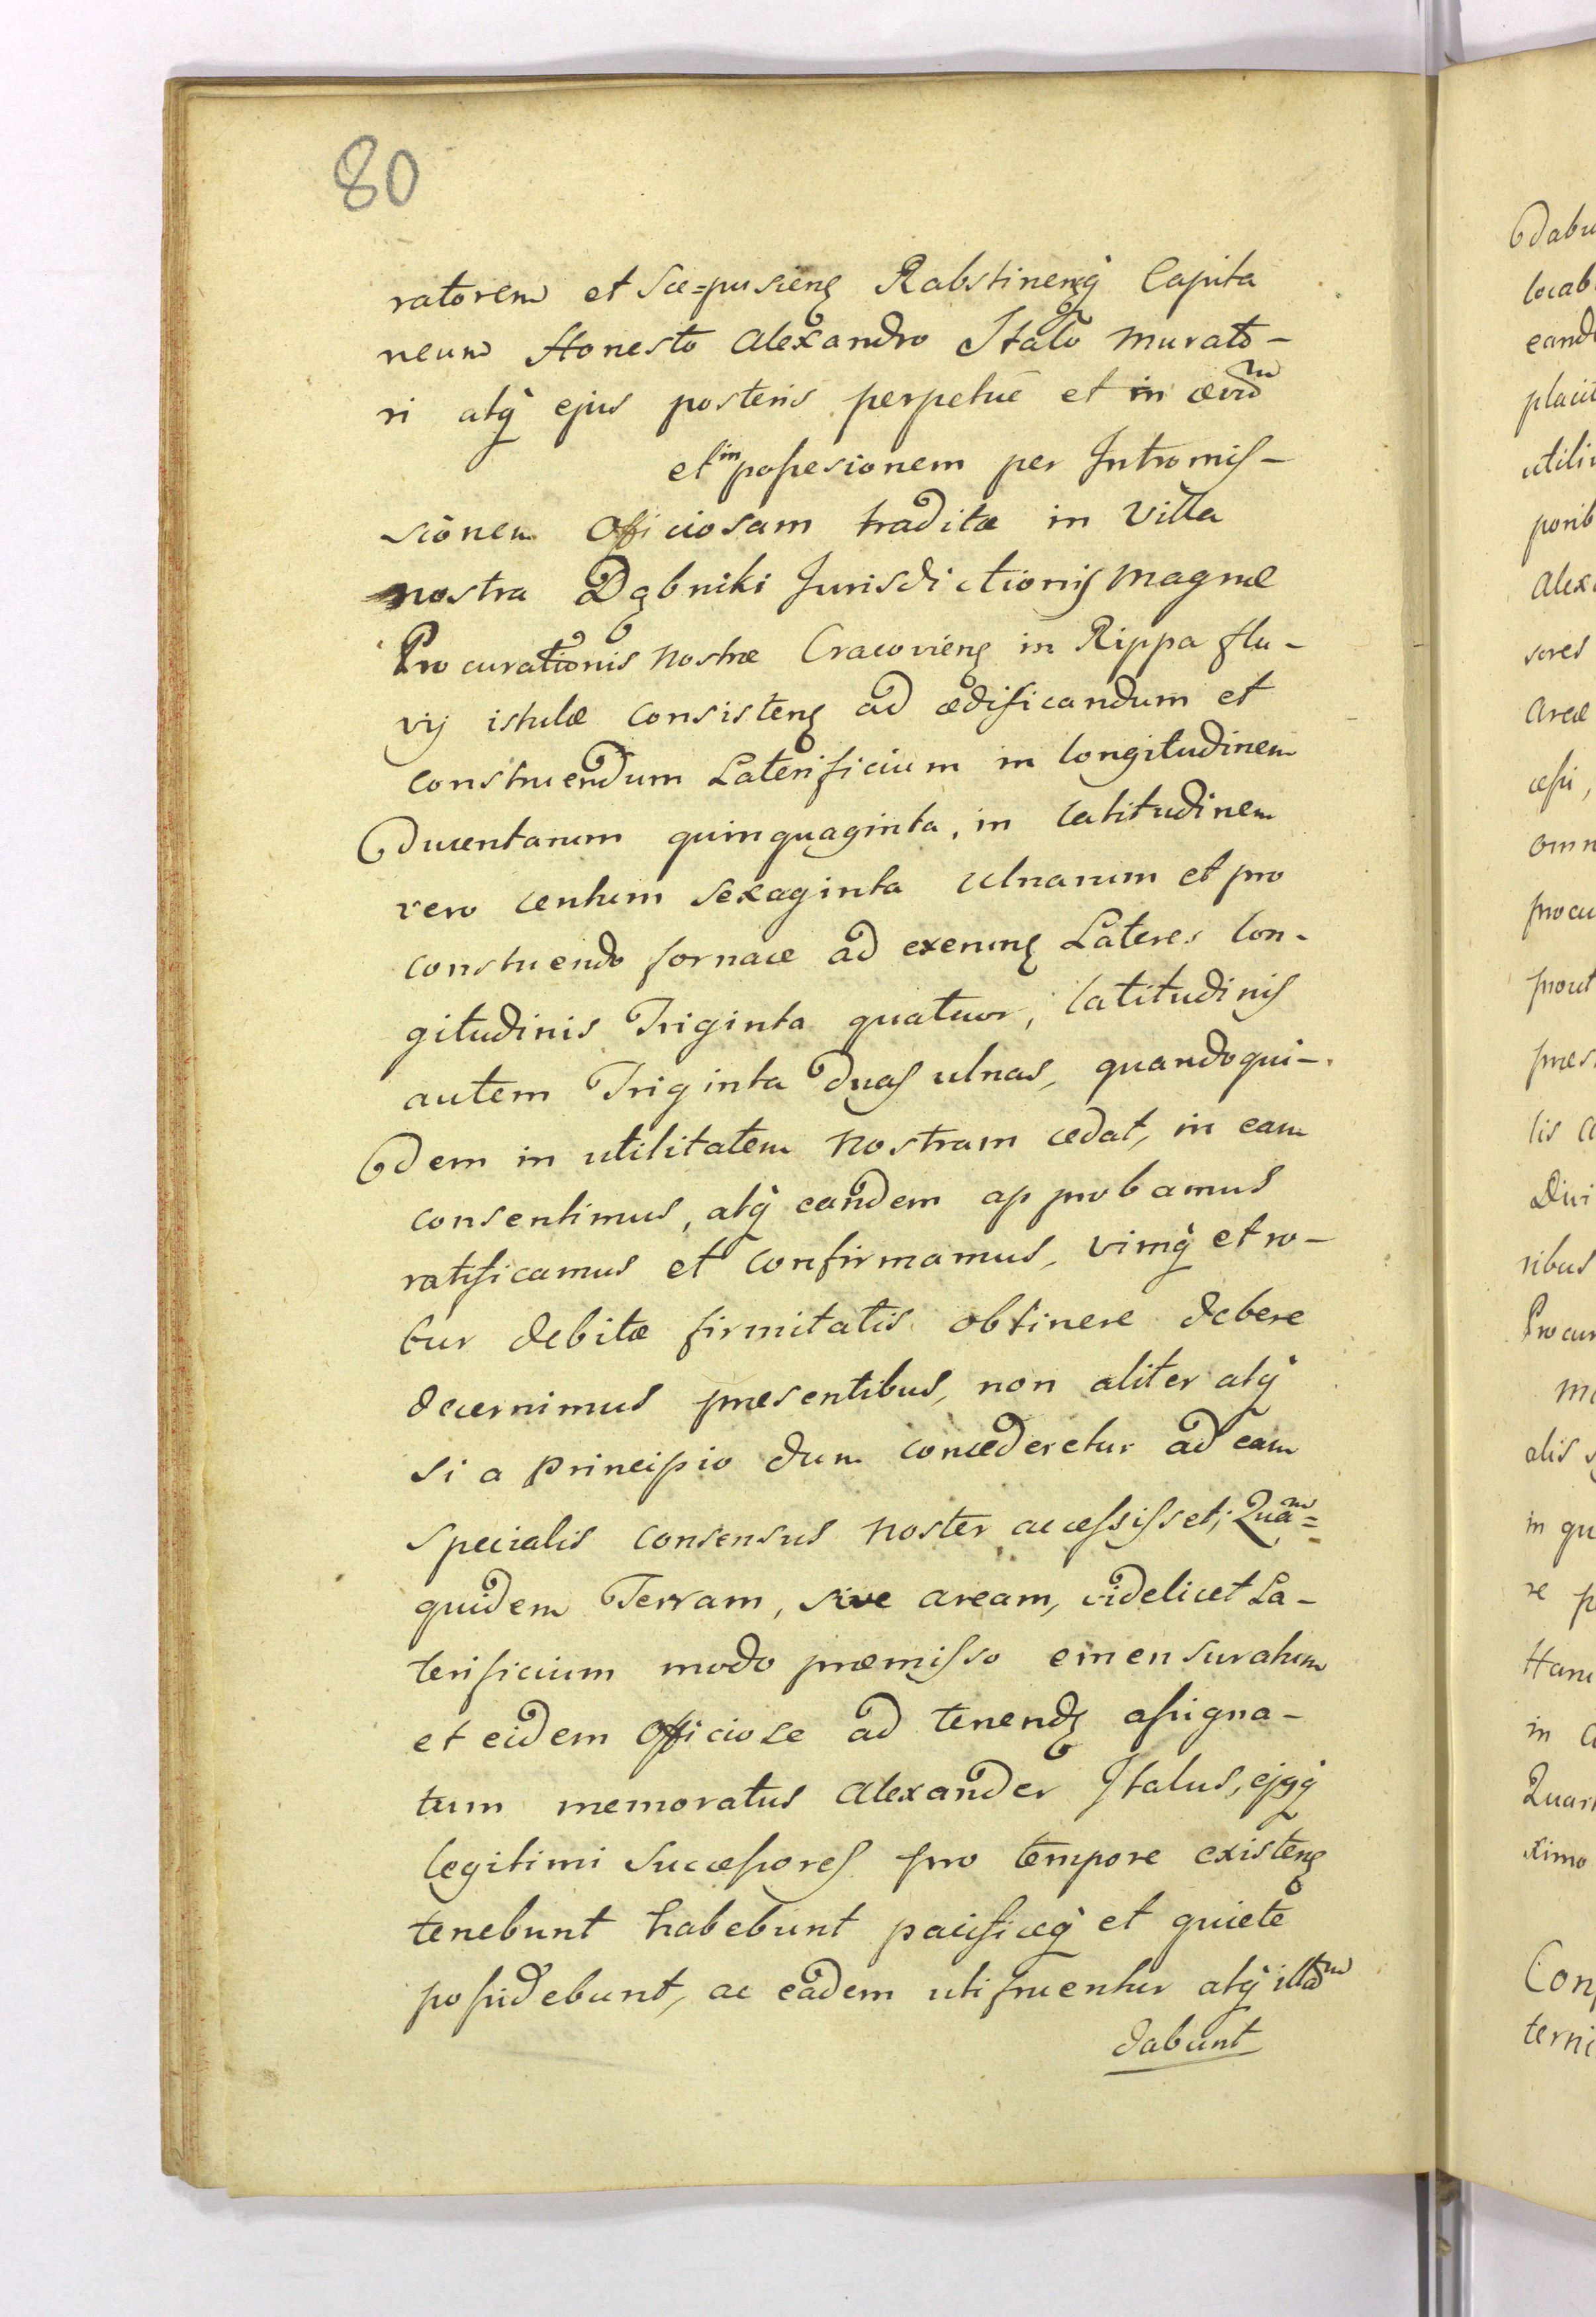 80
ratorem et Sce=pusieng Rabstinengq̀ Capita
neum Honesto Alexandro Italo Murato-
ri atq̀ ejus posteris perpetue et in ævum
et in possesionem per Intromis-
sionem Officiosam traditæ in Villa
nostra Dębniki Jurisdictionis Magnæ
Procurationis Nostræ Cracovieng in Rippa flu-
vij istulæ Consisteng ad ædificandum et
construendum Laterificium in longitudinem
Ducentarum quinquaginta, in latitudinem
vero centum sexaginta ulnarum et pro
construendo fornace ad exering Lateres lon-
gitudinis Triginta quatuor, latitudinis
autem Triginta Duas ulnas, quandoqui-
dem in utilitatem Nostram cedat, in eam
consentimus, atq̀ eandem approbamus
ratificamus et Confirmamus, vimq̀ et ro-
bur debitæ firmitatis obtinere debere
decernimus præsentibus, non aliter atq̀
si a Principio dum concederetur ad eam
specialis Consensus Noster accessisset; Quam=
quidem Terram, sive aream, videlicet La-
terificium modo præmisso emensuratum
et eidem Officiose ad tenendg assigna-
tum memoratus Alexander Italus, ejgq̀
legitimi Successores pro tempore existeng
tenebunt habebunt pacificeq̀ et quiete
possidebunt, ac eadem uti fruentur atq̀ illam
dabunt